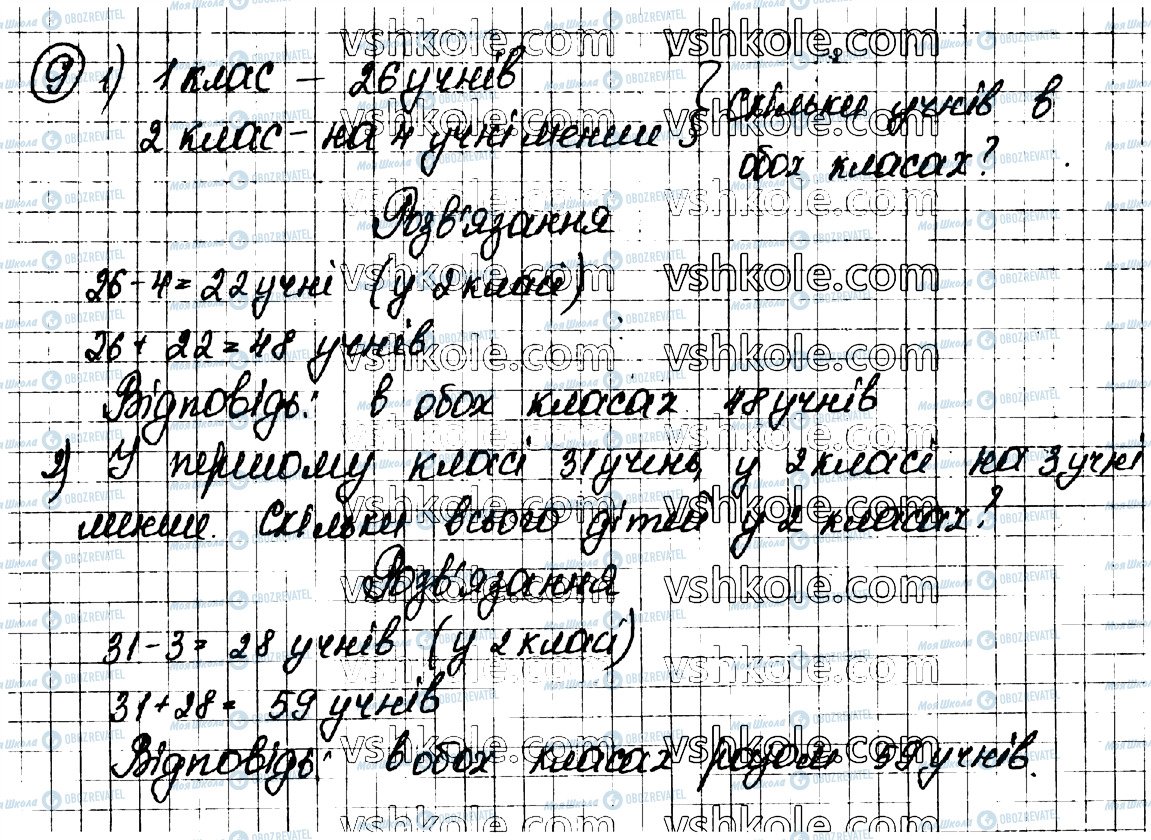 9 1) 1 клас – 26 учнів
2 клас – на 4 учні менше } Скільки учнів в
обох класах?
Розв'язання
26 - 4 = 22 учні (у 2 класі)
26 + 22 = 48 учнів
Відповідь: в обох класах 48 учнів
2) У першому класі 31 учень, у 2 класі на 3 учні
менше. Скільки всього дітей у 2 класах?
Розв'язання
31 - 3 = 28 учнів (у 2 класі)
31 + 28 = 59 учнів
Відповідь: в обох класах разом 59 учнів.
vshkole.com
Моя Школа OBOZREVATEL